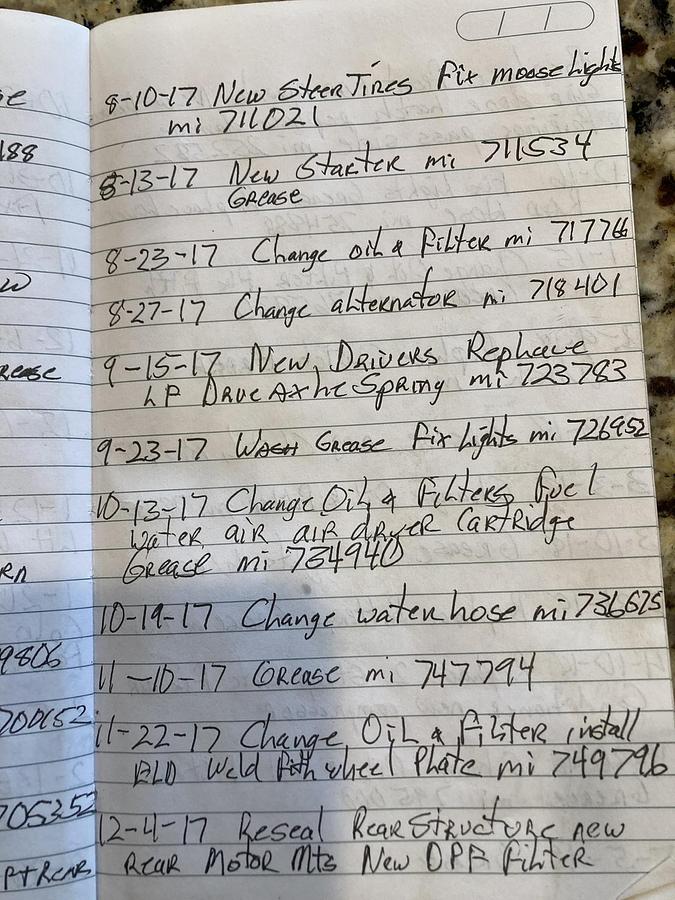 8-10-17 New Steer Tires Fix moose lights
mi 711021
8-13-17 New Starter mi 711534
Grease
8-23-17 Change oil & Filter mi 717766
8-27-17 Change alternator mi 718401
9-15-17 New Drivers Replace
LF Drive Axle Spring mi 723783
9-23-17 Wash Grease Fix Lights mi 726952
10-13-17 Change Oil & Filters Fuel
water air air dryer Cartridge
Grease mi 734940
10-19-17 Change water hose mi 736625
11-10-17 Grease mi 747794
11-22-17 Change Oil & Filter, install
ELD Weld Fifth wheel Plate mi 749796
12-4-17 Reseal Rear Structure new
rear Motor Mts New DPF Filter
188
rease
9806
700152
705352